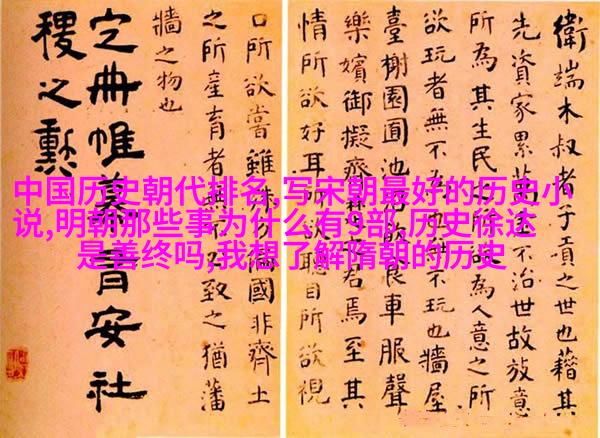 中国历史朝代排名,写宋朝最好的历史小
说,明朝那些事为什么有9部,历史徐达
是善终吗,我想了解隋朝的历史
衛端木叔者子項之世也藉其
先資家累萬不治世故放意
所為其生民之所欲為人意之所
欲玩者無不為也不玩也牆屋
臺榭園囿池飲食車服聲
樂嬪御擬齊君焉至其
情所欲好耳所欲聽目所欲視
口所欲嘗雖殊偏國非齊土
之所產育者無不致之猶藩
牆之物也
定冊帷幕有安社
稷之勲